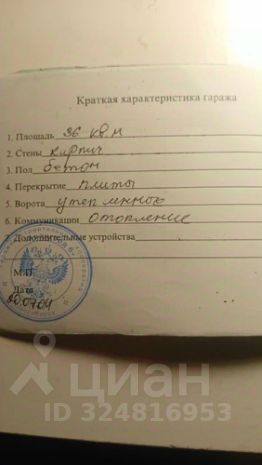 Краткая характеристика гаража
1. Площадь 36 кв м
2. Стены кирпич
3. Пол бетон
4. Перекрытие плиты
5. Ворота утепленные
6. Коммуникации отопление
7. Дополнительные устройства
М.П.
Дата
циан
ID 324816953